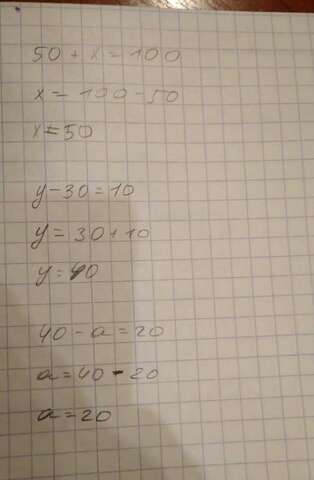 50 + x = 100
x = 100 - 50
x = 50
y - 30 = 10
y = 30 + 10
y = 40
40 - a = 20
a = 40 - 20
a = 20